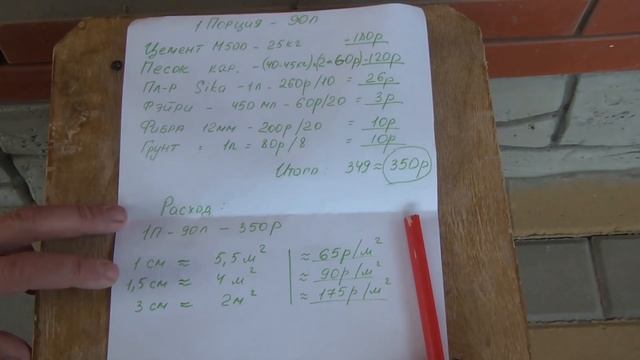 1 Порция - 90л
Цемент М500 - 25кг - 180р
Песок кар. - (40-45кг)×(2×60р) - 120р
Пл-р Sika - 1л - 260р/10 = 26р
Фэйри - 450мл - 60р/20 = 3р
Фибра 12мм - 200р/20 = 10р
Грунт = 1л = 80р/8 = 10р
Итого: 349 ≈ 350р
Расход:
1П - 90л - 350р
1 см ≈ 5,5м² ≈ 65р/м²
1,5 см ≈ 4м² ≈ 90р/м²
3 см ≈ 2м² ≈ 175р/м²